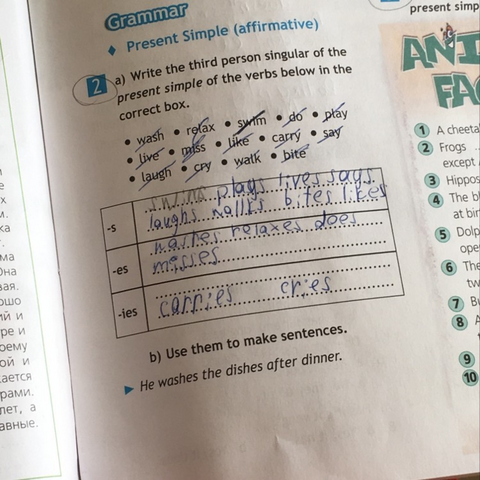 Grammar
Present Simple (affirmative)
2 a) Write the third person singular of the
present simple of the verbs below in the
correct box.
• wash • relax • swim • do • play
• live • miss • like • carry • say
• laugh • cry • walk • bite
-s
swims plays lives says
laughs walks bites likes
-es
washes relaxes does
messes
-ies
carries cries
b) Use them to make sentences.
He washes the dishes after dinner.
present simp
ANI
FA
1 A cheeta
2 Frogs
except
3 Hippos
4 The bl
at bir
5 Dolp
ope
6 The
tw
7 Bu
8 A
9
10
ма
Она
вая.
ошо
ий и
ре и
оему
ой и
кается
рами.
лет, а
авные.